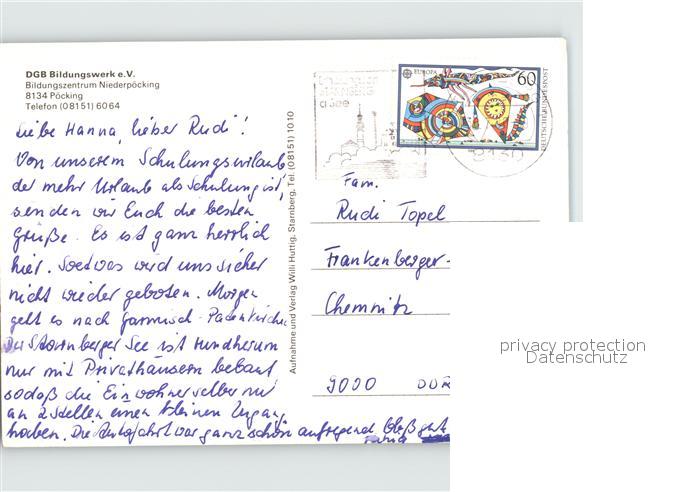 DGB Bildungswerk e.V.
Bildungszentrum Niederpöcking
8134 Pöcking
Telefon (08151) 6064
Liebe Hanna, lieber Rudi!
Von unserem Schulungsurlaub,
der mehr Urlaub als Schulung ist,
senden wir Euch die besten
Grüße. Es ist ganz herrlich
hier. Soetwas wird uns sicher
nicht wieder geboten. Morgen
geht es nach Garmisch-Patenkirchen
Der Starnberger See ist rundherum
nur mit Privathäusern bebaut
sodaß die Einwohner selber nur
an 2 Stellen einen kleinen Zugang
haben. Die Autofahrt war ganz schön aufregend bloß gut
Aufnahme und Verlag Willi Huttig, Starnberg, Tel. (08151) 1010
STARNBERG
a See
EUROPA
60
DEUTSCHE BUNDESPOST
Fam.
Rudi Topel
Frankenberger-
Chemnitz
9000 DDR
privacy protection
Datenschutz